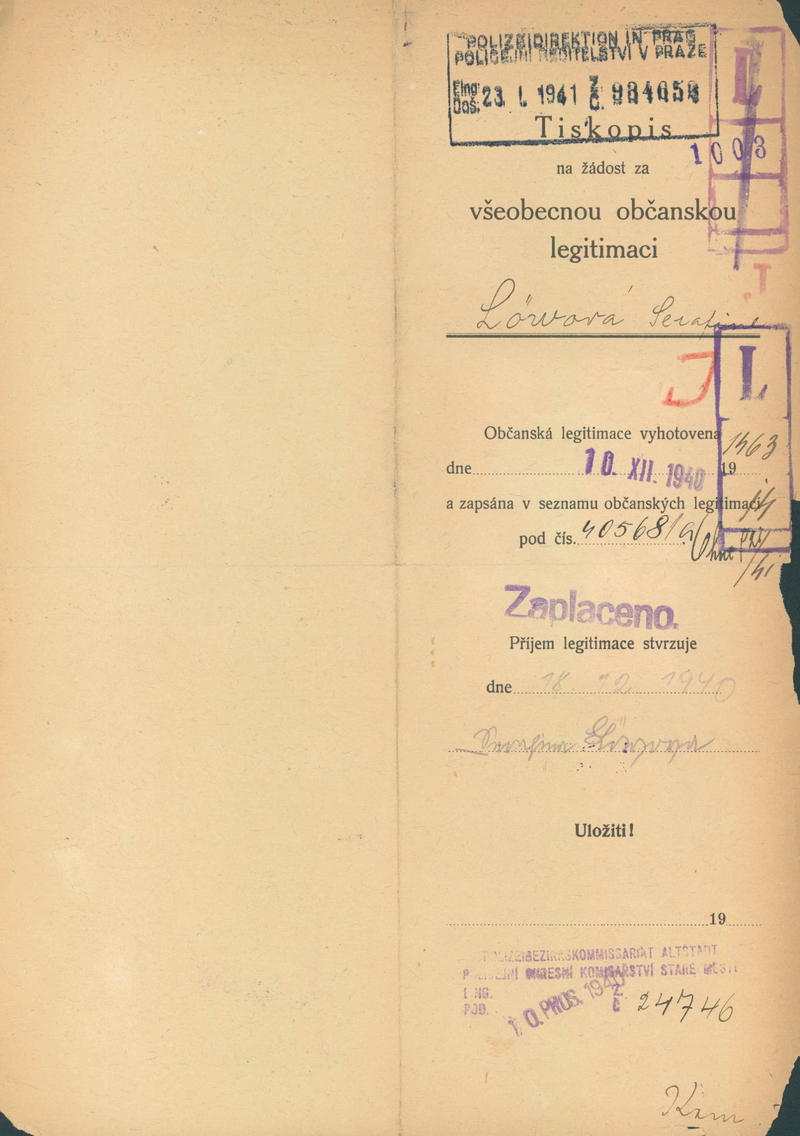 POLIZEIDIREKTION IN PRAG
POLICEJNÍ ŘEDITELSTVÍ V PRAZE
Eing.
Doš. 23. I. 1941 Z. Č. 984654
L
1003
Tiskopis
na žádost za
všeobecnou občanskou
legitimaci
J
Löwová Serafine
J
L
1563
Občanská legitimace vyhotovena
dne 10. XII. 1940 19
a zapsána v seznamu občanských legitimací
pod čís. 40568/a
Zaplaceno.
Příjem legitimace stvrzuje
dne 18. 12. 1940
Serafina Löwova
Uložiti!
19
POLIZEIBEZIRKSKOMMISSARIAT ALTSTADT
POLICEJNÍ OKRESNÍ KOMISAŘSTVÍ STARÉ MĚSTO
EING.
POD. 10. PROS. 1940 Z. Č 24746